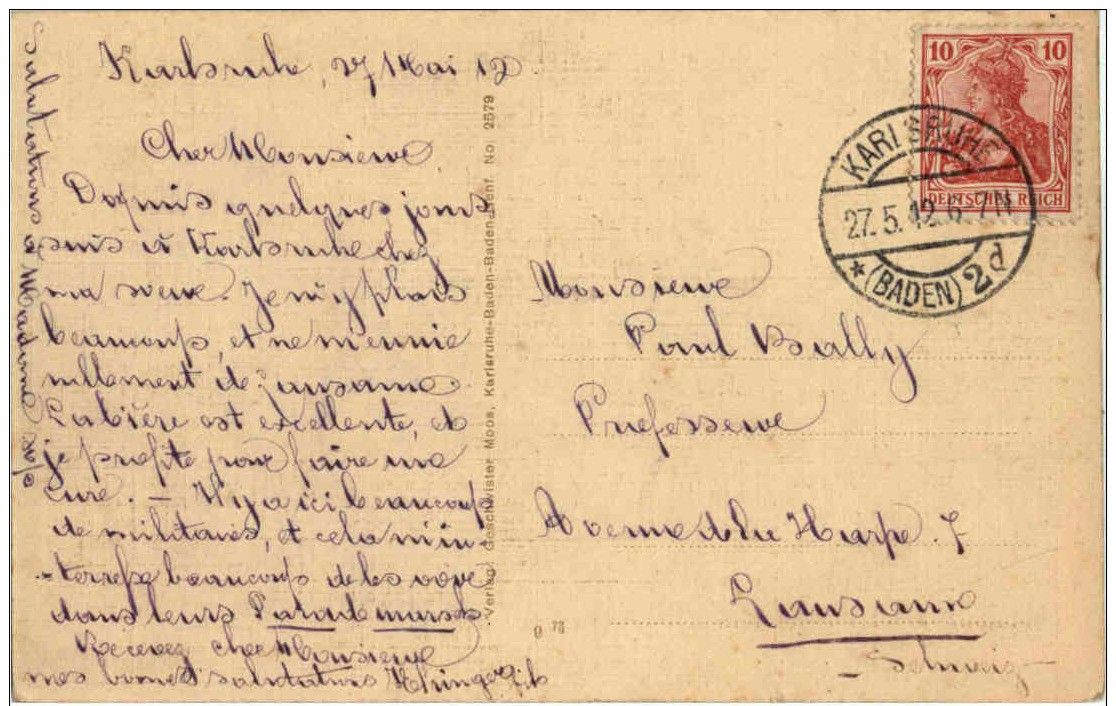 Karlsruhe, 27 Mai 12
Cher Monsieur
Depuis quelques jours
suis à Karlsruhe chez
ma soeur. Je m'y plais
beaucoup, et ne m'ennuie
nullement de Lausanne.
La bière est excellente, et
je profite pour faire une
cure. — Il y a ici beaucoup
de militaires, et cela m'in-
-terresse beaucoup de les voir
dans leurs Paradémarsch
Recevez cher Monsieur
mes bonnes salutations
Salutations à Madame svp
Verlag Geschwister Moos, Karlsruhe-Baden-Badener Str. No. 2579
9 78
10 10
DEUTSCHES REICH
KARLSRUHE
27.5.12. 6-7N
* (BADEN) 2d
Monsieur
Paul Bally
Professeur
Avenue de la Harpe. 7
Lausanne
- Schweiz -